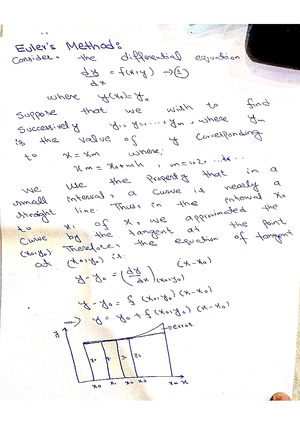 Euler's Method:
Consider the differential equation
dy/dx = f(x,y) → ①
where y(x₀) = y₀
Suppose that we wish to find
successively y₁, y₂, ..., yₘ, where yₘ
is the value of y corresponding
to x = xₘ where,
xₘ = x₀ + mh, m = 1, 2, ...
We use the property that in a
small interval, a curve is nearly a
straight line. Thus in the interval x₀
to x₁ of x, we approximated the
curve by the tangent at the point
(x₀, y₀). Therefore, the equation of tangent
at (x₀, y₀) is
y - y₀ = (dy/dx)(x₀,y₀) (x - x₀)
y - y₀ = f(x₀,y₀) (x - x₀)
→ y = y₀ + f(x₀,y₀) (x - x₀)
y
error
y₀ y₁ y₂ y₃
x₀ x₁ x₂ x₃ xₘ x